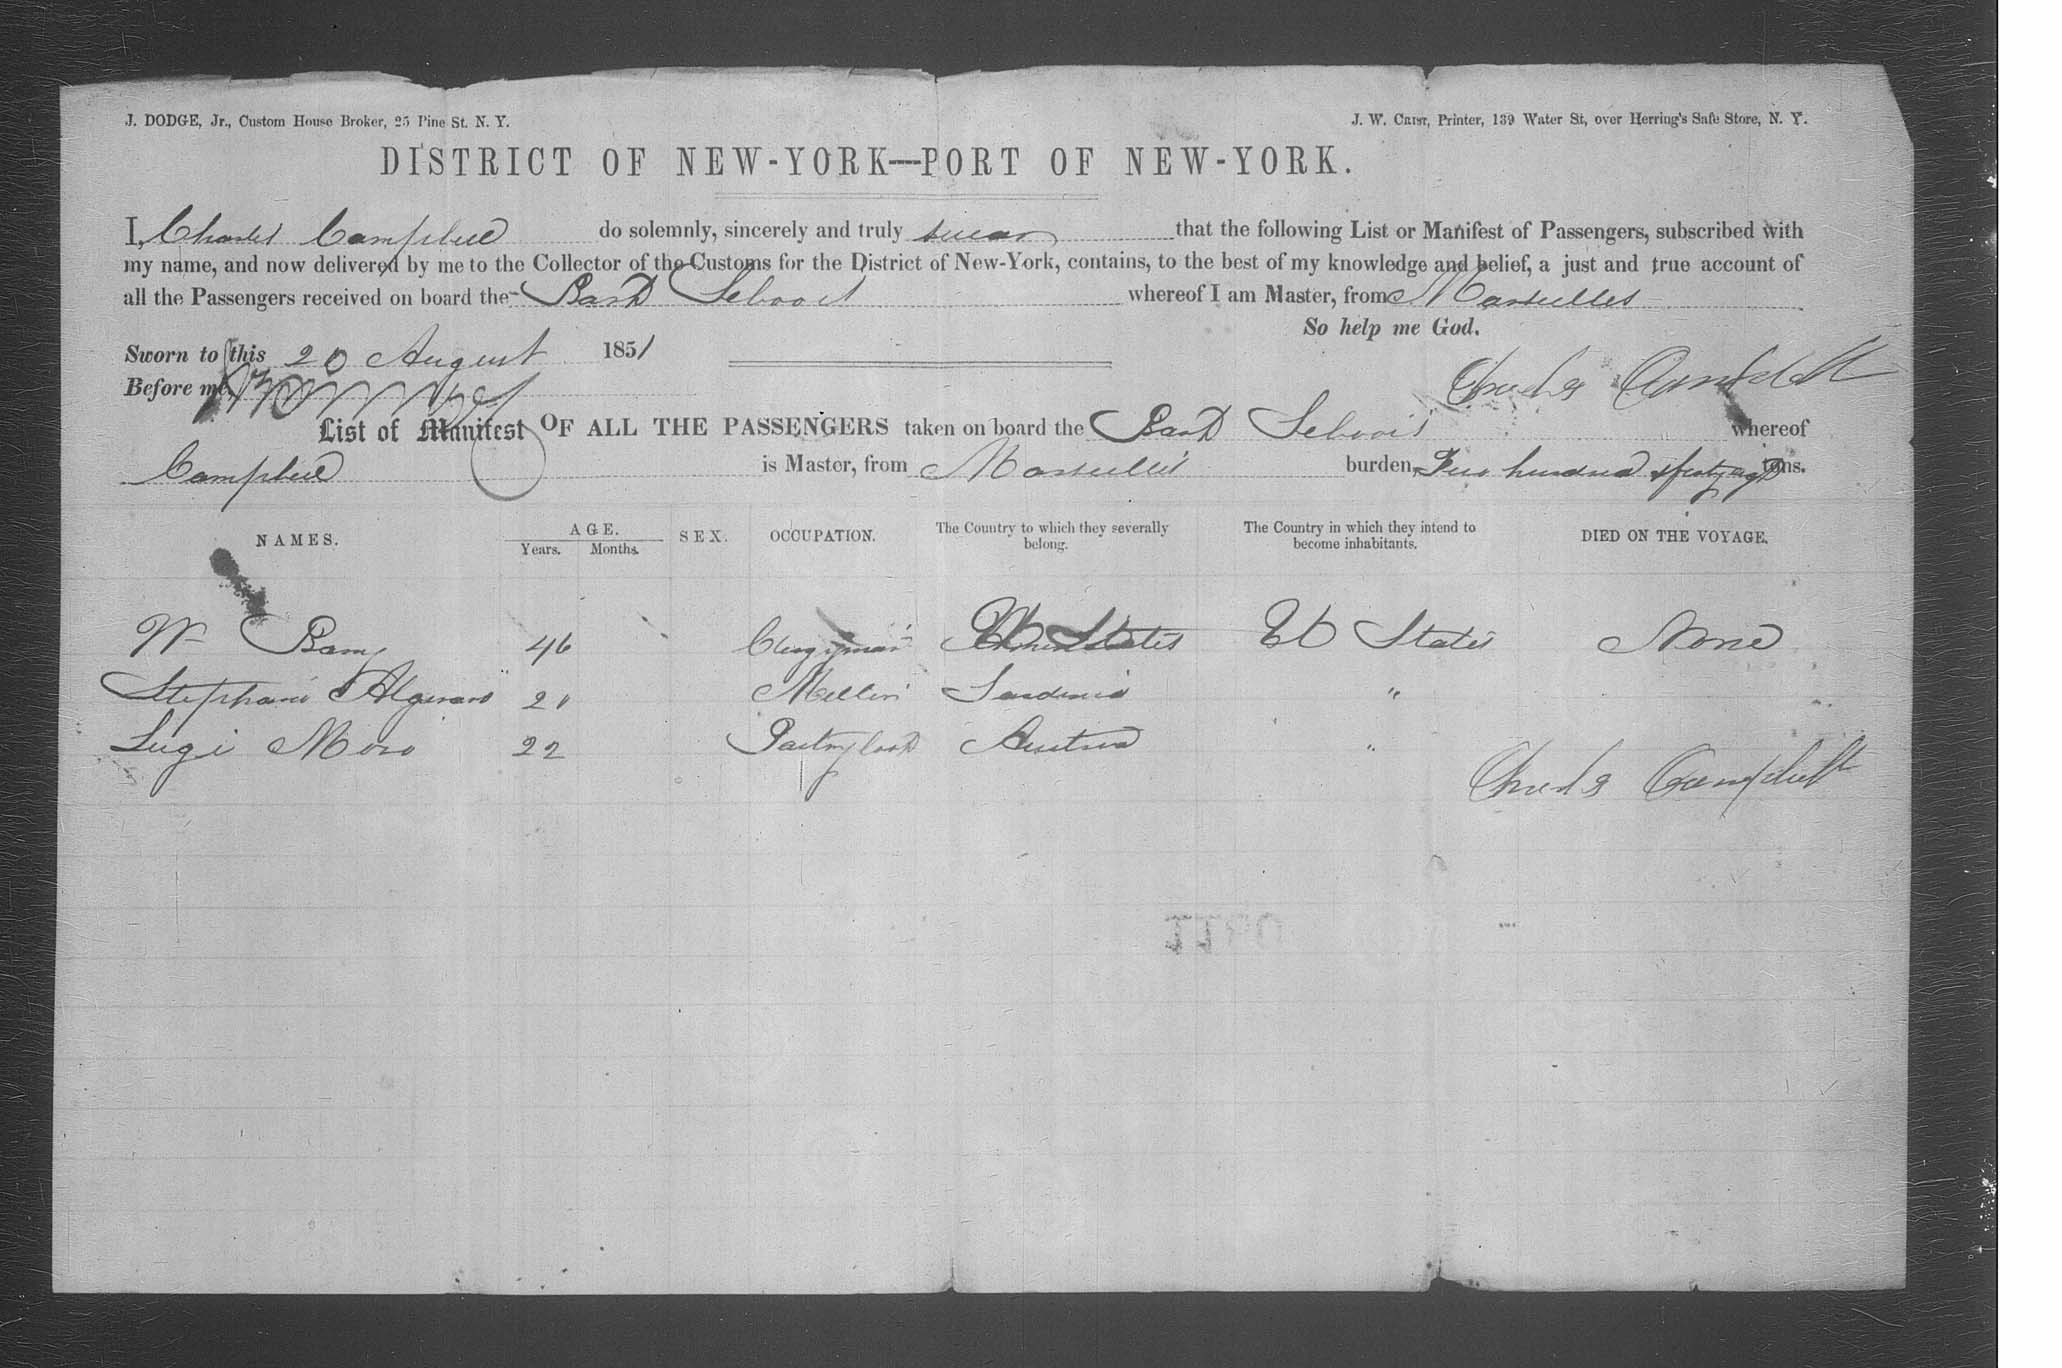 J. DODGE, Jr., Custom House Broker, 25 Pine St. N. Y.
J. W. CRIST, Printer, 139 Water St, over Herring's Safe Store, N. Y.
DISTRICT OF NEW-YORK—PORT OF NEW-YORK.
I, Charles Campbell do solemnly, sincerely and truly swear that the following List or Manifest of Passengers, subscribed with
my name, and now delivered by me to the Collector of the Customs for the District of New-York, contains, to the best of my knowledge and belief, a just and true account of
all the Passengers received on board the Bark Seboois whereof I am Master, from Marseilles
So help me God.
Sworn to this 20 August 1851
Before me,
Charles Campbell
List of Manifest OF ALL THE PASSENGERS taken on board the Bark Seboois whereof
Campbell is Master, from Marseilles burden, Two hundred & forty eight tons.
NAMES. AGE. SEX. OCCUPATION. The Country to which they severally belong. The Country in which they intend to become inhabitants. DIED ON THE VOYAGE.
Years. Months.
W 46 Clergyman States U States None
Stephano 21 Sardinia "
Luigi Moro 22 Pastry Cook Austria "
Charles Campbell